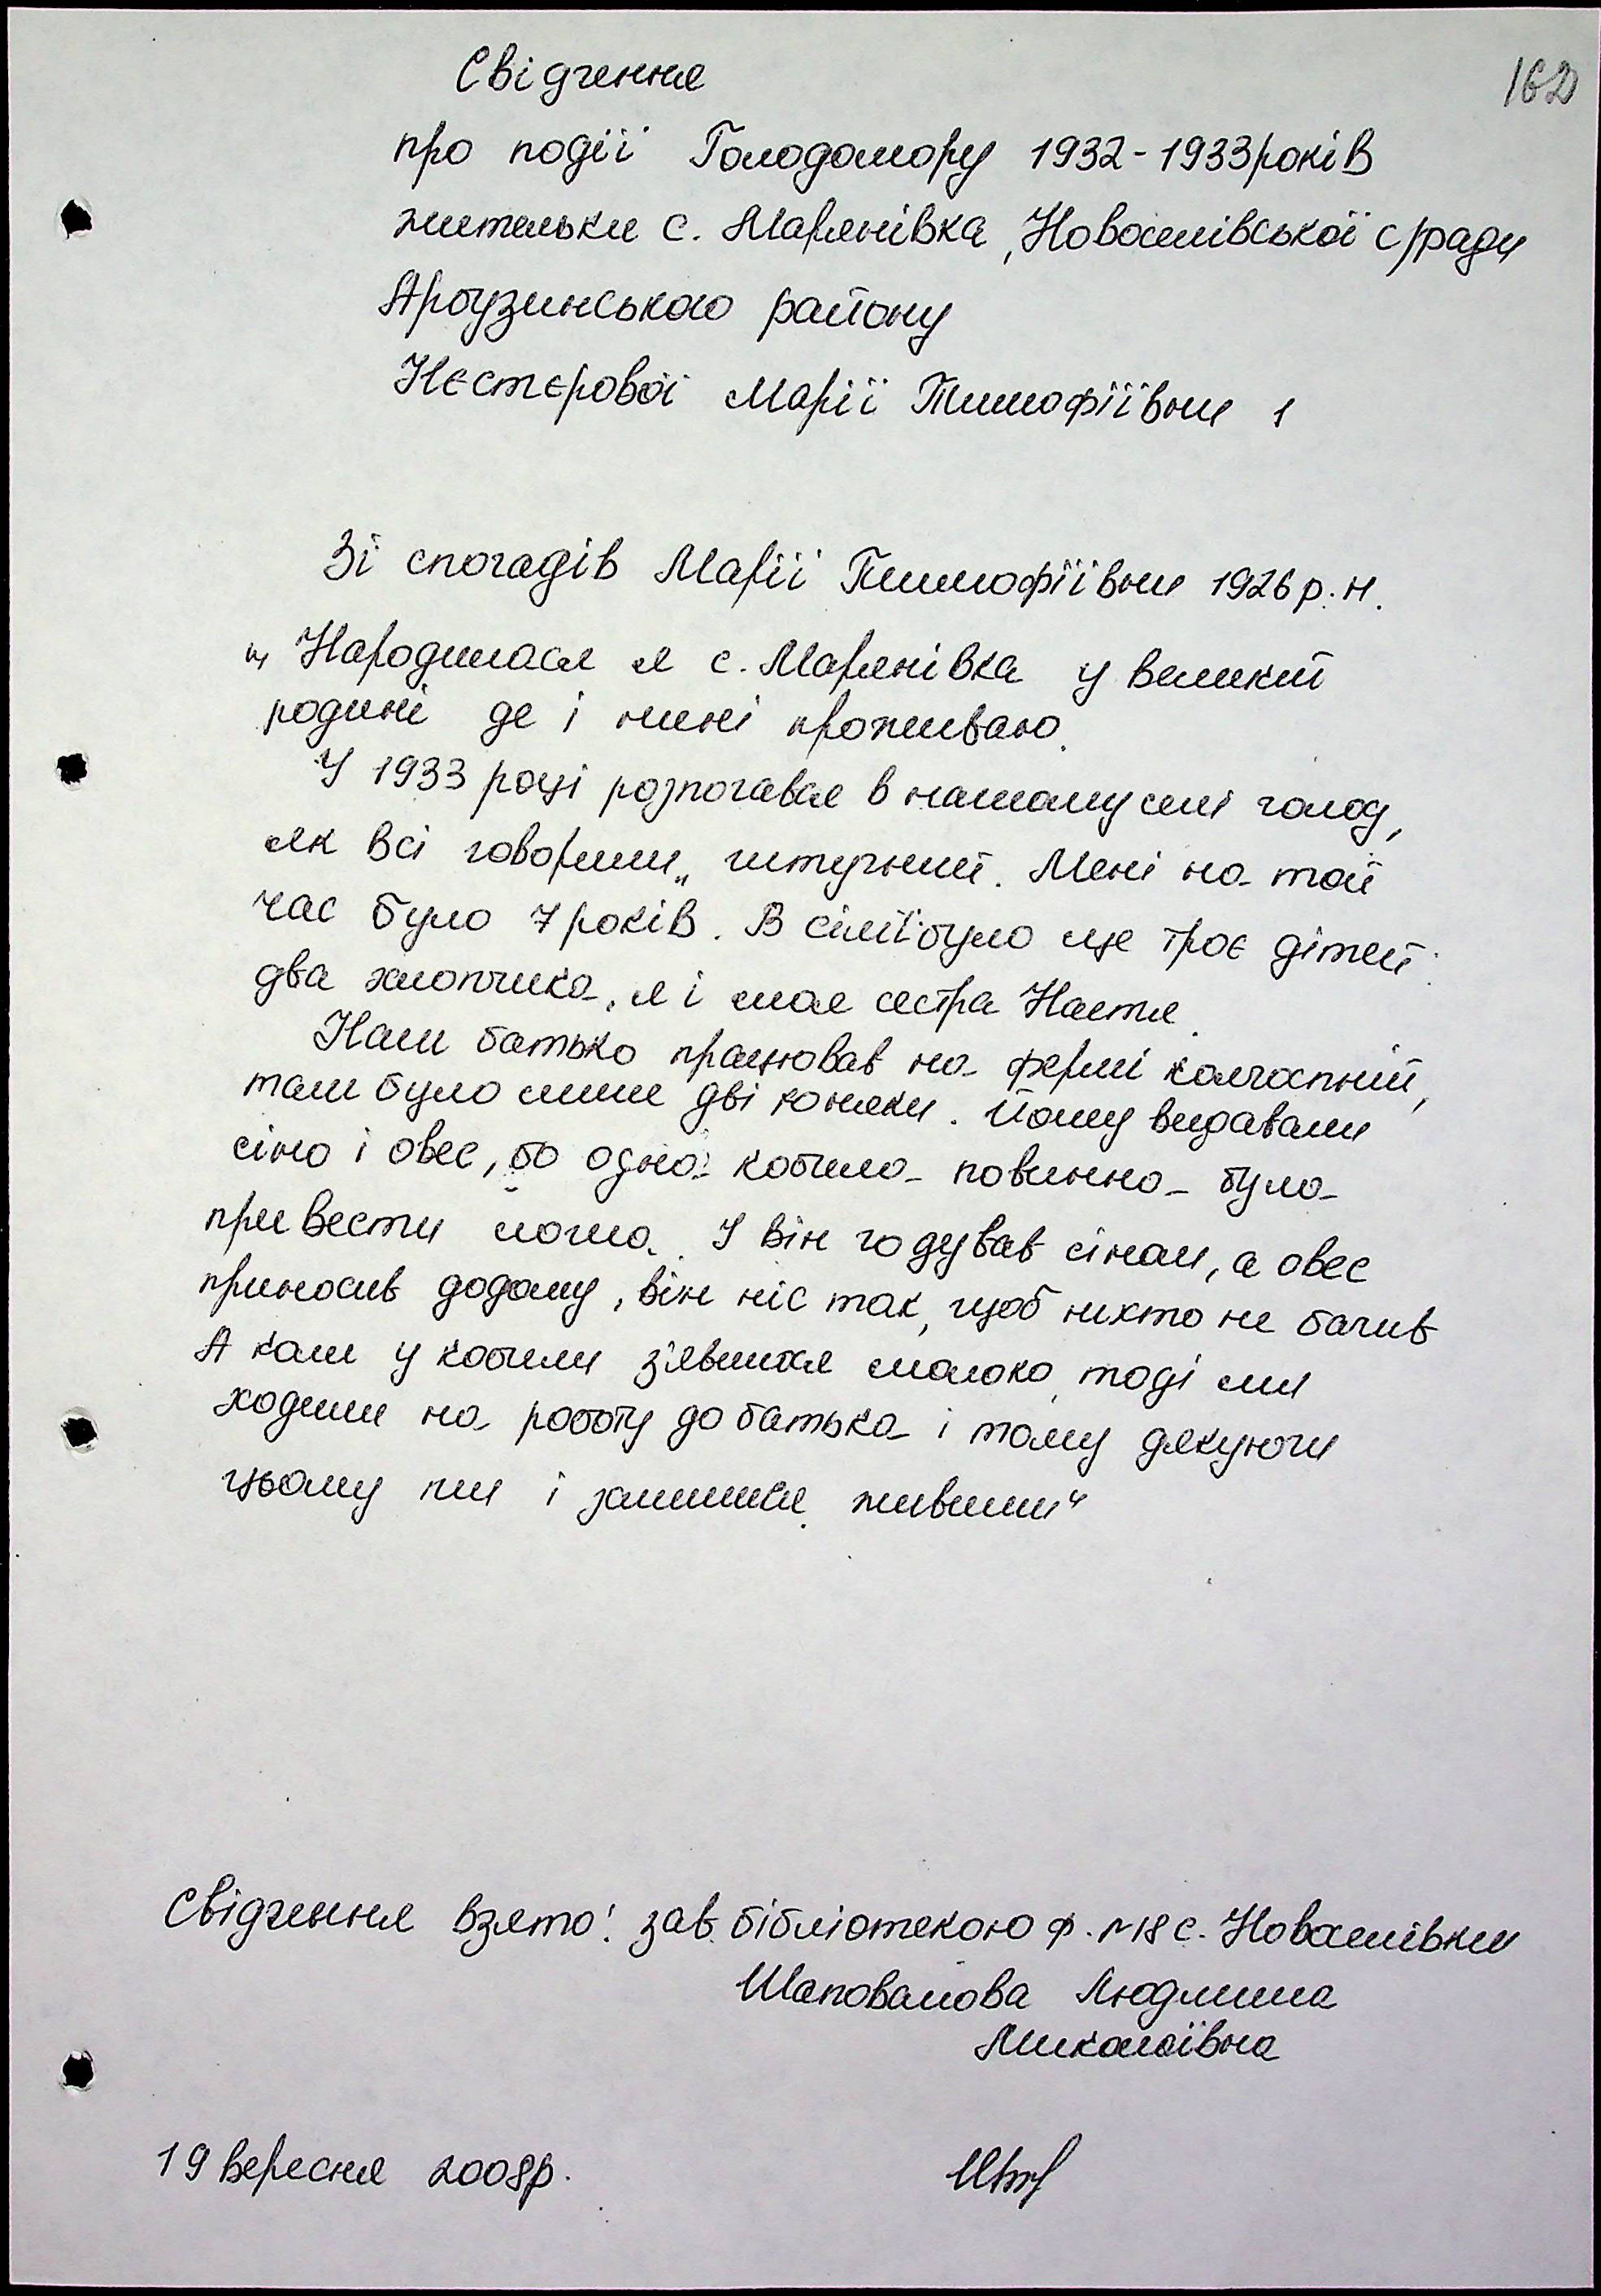 162
Свідчення
про події Голодомору 1932-1933років
жительки с. Мар'янівка, Новоселівської с/ради
Арбузинського району
Нестерової Марії Тимофіївни
Зі спогадів Марії Тимофіївни 1926 р.н.
„ Народилася я с. Мар'янівка у великій
родині де і нині проживаю.
У 1933 році розпочався в нашому селі голод,
як всі говорили „ штучний. Мені на той
час було 7 років. В сім'ї було ще троє дітей:
два хлопчика, я і моя сестра Настя.
Наш батько працював на фермі колгоспній,
там було лише дві коняки. Йому видавали
сіно і овес, бо одна кобила повинна була
привести лоша. І він годував сіном, а овес
приносив додому, він ніс так, щоб ніхто не бачив
А коли у кобили з'явилося молоко, тоді ми
ходили на роботу до батька і тому дякуючи
цьому ми і залишися живими"
Свідчення взято: зав. бібліотекою ф. №18 с. Новоселівки
Шаповалова Людмила
Миколаївна
19 вересня 2008р.